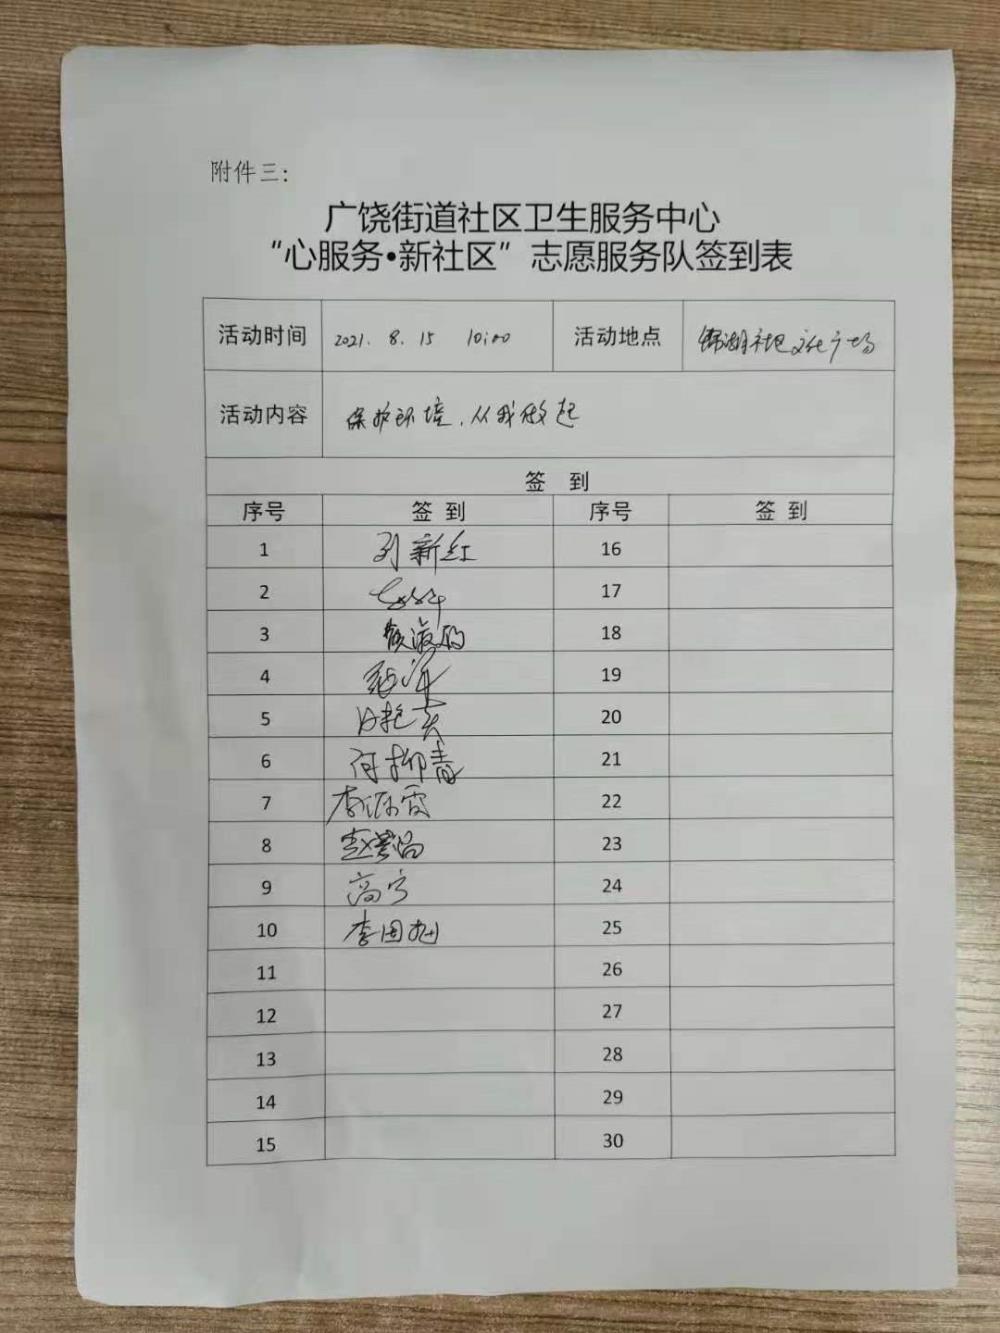 附件三：
广饶街道社区卫生服务中心
“心服务•新社区”志愿服务队签到表
活动时间 2021. 8. 15 10:00 活动地点 锦湖社区文化广场
活动内容 保护环境，从我做起
签 到
序号 签 到 序号 签 到
1 刘新红 16
2 17
3 18
4 19
5 20
6 何柳青 21
7 李源霞 22
8 23
9 高宁 24
10 李国旭 25
11 26
12 27
13 28
14 29
15 30